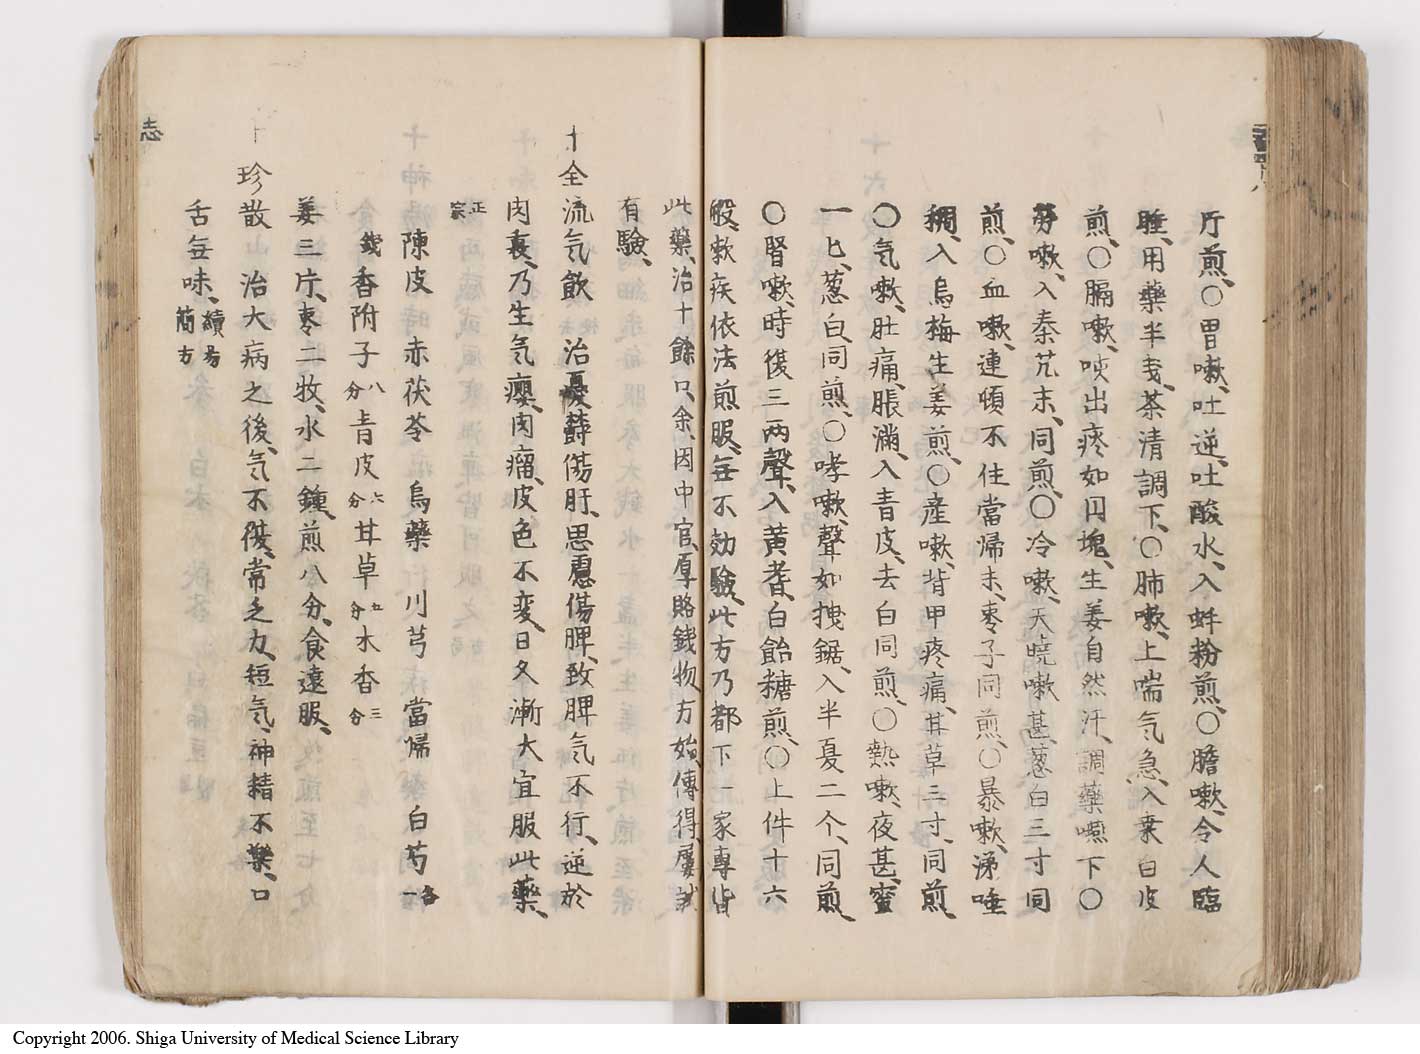 片煎、○胃嗽、吐逆、吐酸水、入蚌粉煎、○膽嗽、令人臨
睡、用藥半戔、茶清調下、○肺嗽、上喘气急、入桒白皮
煎、○膈嗽、咳出疼如円塊、生姜自然汗、調藥嚥下○
劳嗽、入秦艽末、同煎、○冷嗽、天曉嗽甚、葱白三寸同
煎、○血嗽、連頃不住、當帰末、枣子同煎、○暴嗽、涕唾
稠、入烏梅生姜煎、○産嗽、背甲疼痛、甘草三寸、同煎
○気嗽、肚痛、脹滿、入青皮、去白同煎、○熱嗽、夜甚、蜜
一匕、葱白同煎、○哮嗽、聲如拽鋸、入半夏二个、同煎
○腎嗽、時復三両聲、入黄耆、白飴糖煎、○上件十六
般、嗽疾依法煎服、無不効驗、此方乃都下一家專皆
此藥、治十餘口、余因中官、厚賂錢物、方始傳得、屢試
有驗、
十全流気飲 治憂欝傷肝、思慮傷脾、致脾気不行、逆於
肉裏、乃生気癭、肉瘤、皮色不変、日久漸大、宜服此藥、
正宗
陳皮 赤茯苓 烏藥 川芎 當帰 白芍各一
錢香附子八分青皮六分甘草五分木香三分
姜三片、枣二牧、水二鍾、煎八分、食遠服、
十珍散 治大病之後、気不復、常乏力、短気、神精不樂、口
舌無味、續易簡方
志